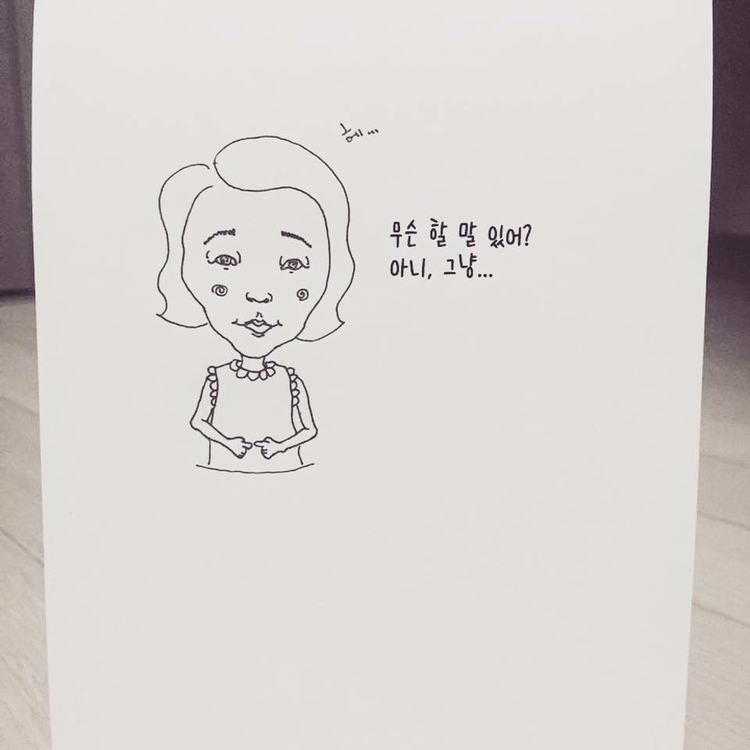 헤...
무슨 할 말 있어?
아니, 그냥...